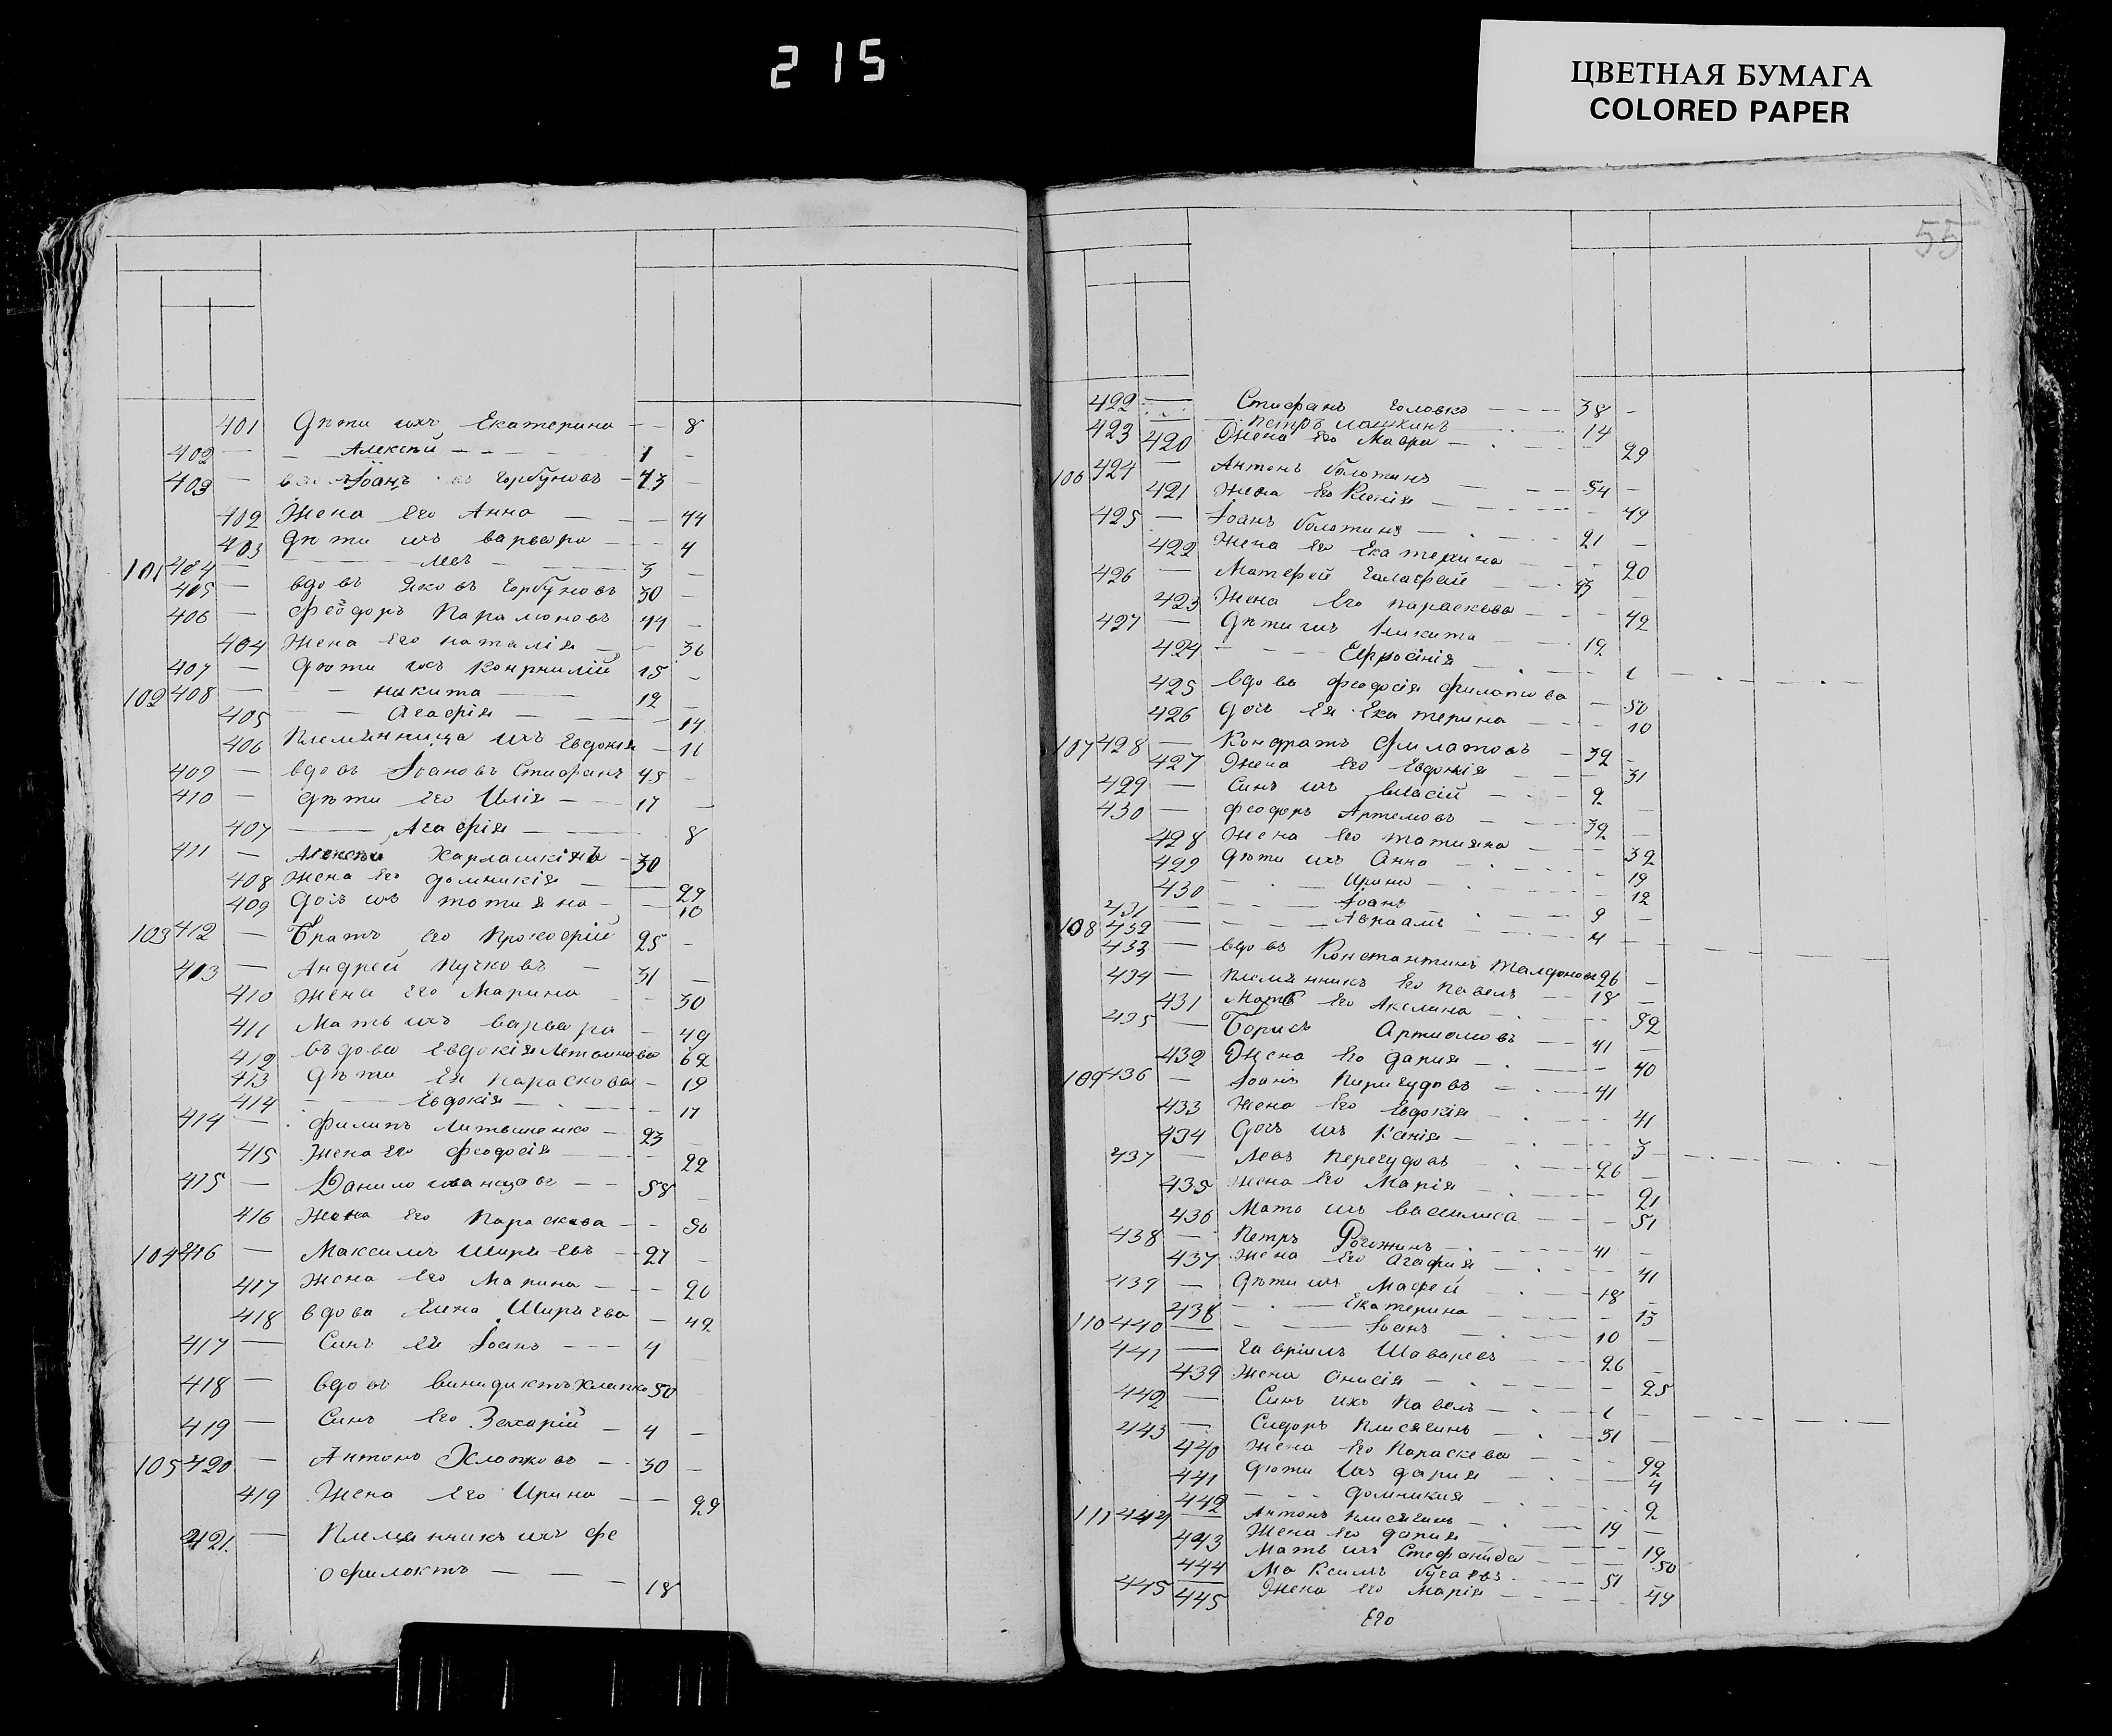 215
ЦВЕТНАЯ БУМАГА
COLORED PAPER
401 Дѣти ихъ Екатерина — — 8
402 — — Алексѣй — — — 1 —
403 — Іоанъ Горбуновъ — 73 —
402 Жена Его Анна — — — 44
403 Дѣти ихъ варвара — — — 4
101 404 — — — 3 —
405 — вдовъ Яковъ Горбуновъ 30 —
406 — Феодоръ Парамоновъ 44 —
404 Жена Его наталія — — 36
407 — Дѣти ихъ Конрнилій 15 —
102 408 — — никита — — 12 —
405 — — Агафія — — — 14
406 Племянница ихъ Евдокія — 11
409 — вдовъ Іоановъ Стифанъ 45 —
410 — дѣти Его Илія — — 17 —
407 — — Агафія — — 8
411 — Алексѣй Харлашкінъ — 30
408 Жена Его домникія — — 29
409 дочь ихъ татияна — — 10
103 412 — Братъ его Прокофій 25 —
413 — Андрей Пучковъ — 31 —
410 Жена Его Марина — — 30
411 Мать ихъ варвара — 49
412 въдова Евдокія 62
413 Дѣти Ея Параскова — 19
414 — — Евдокія — — — 17
414 — Филипъ Литвиненко — 23 —
415 Жена Его Феодосія — — 22
415 — Данило — — 58 —
416 Жена Его Параскева — — 50
104 416 — Максимъ Ширяевъ — 27 —
417 Жена Его Марина — — 26
418 вдова Елена Ширяева — 42
417 — Синъ Ея Іоанъ — — — 4
418 — вдовъ Винидиктъ 50 —
419 — Синъ Его Захарій — 4 —
105 420 — Антонъ Хлопковъ — 30 —
419 Жена Его Ирина — — 29
421 — Племянникъ ихъ Фе
офилактъ — — — 18
55
422 — Стифанъ Головко — — — 38 —
— Петръ — 14
423 420 Жена Его Мавра — — 29
106 424 — Антонъ Болотинъ — — 54 —
421 Жена Его Ксенія — — — 49
425 — Іоанъ Болотинъ — — 21 —
422 Жена Его Екатерина — — 20
426 — Матефей — 43 —
423 Жена Его параскева — — 42
427 — Дѣти ихъ Никита — — 19
424 — — — Ефросінія — — 1
425 вдова феодосія филатова — 50
426 дочь Ея Екатерина — — 10
107 428 — Кондратъ Филатовъ — 32 —
427 Жена Его Евдокія — — 31
429 — Синъ ихъ власій — — 9 —
430 — Феодоръ Артемовъ — 32 —
428 Жена Его татияна — — 32
429 дѣти ихъ Анна — — 19
430 — — Ирина — — 12
431 — — — Іоанъ — — 9 —
108 432 — — — Авраамъ — — 4 —
433 — вдовъ Константинъ 26 —
434 — племянникъ Его Павелъ — 18 —
431 Мать Его Акелина — — 52
435 — Борисъ Артиомовъ — 41 —
432 Жена Его дария — — 40
109 436 — Іоанъ Пиригудовъ — 41
433 Жена Его Евдокія — — 41
434 Дочь ихъ — — 3
437 — Левъ Перегудовъ — 26 —
435 Жена Его Марія — — 21
436 Мать ихъ василиса — — 51
438 — Петръ Рогожинъ — — 41 —
437 Жена Его Агафия — — 41
439 — Дѣти ихъ Мафей — — 18 —
438 — — Екатерина — — 13
110 440 — — — Іоанъ — — 10 —
441 — Гавріилъ Шаваревъ — 26 —
439 Жена Анисія — — 25
442 — Синъ ихъ Павелъ — — 1 —
443 — Сидоръ — 51 —
440 Жена Его Параскева — — 22
441 Дѣти ихъ дария — — 4
442 — — домникия — — 2
111 444 — Антонъ — 19 —
443 Жена Его дария — — 19
444 Мать ихъ Стефанида — — 50
445 — Максимъ — 51
445 Жена Его Марія — — 49
Его